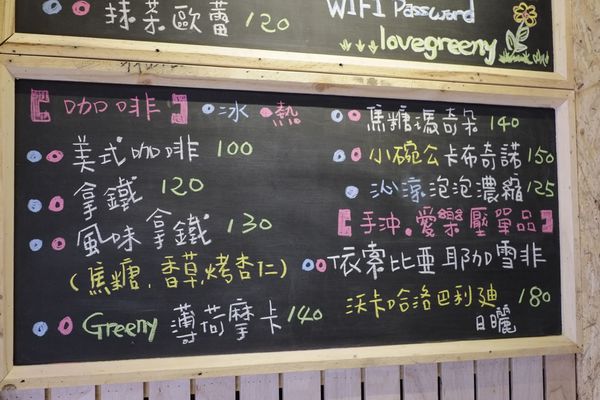 抹茶歐蕾 120
WIFI Password
lovegreeny
【咖啡】 冰 熱
美式咖啡 100
拿鐵 120
風味拿鐵 130
(焦糖、香草、烤杏仁)
Greeny 薄荷摩卡 140
焦糖瑪奇朵 140
小碗公卡布奇諾 150
沁涼泡泡濃縮 125
【手沖.愛樂壓單品】
衣索比亞 耶加雪非
沃卡哈洛巴利迪 180
日曬